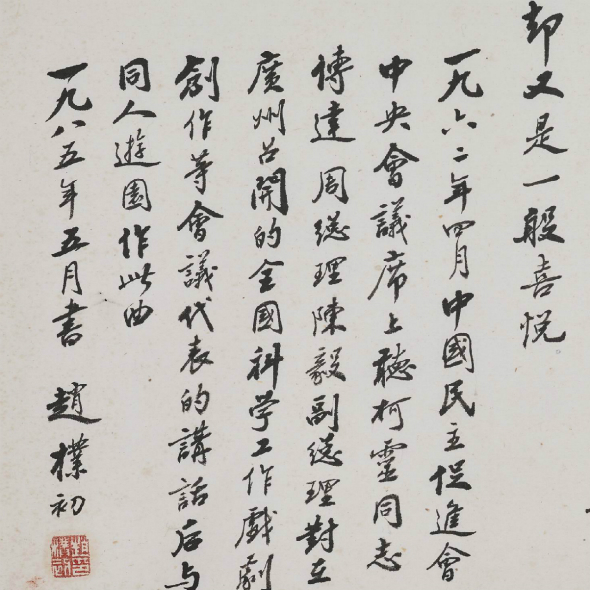 却又是一般喜悦
一九六二年四月中國民主促進會
中央會議席上聽柯靈同志
傳達周總理陳毅副總理對在
廣州召開的全國科学工作戲劇
創作等會議代表的講話后与
同人遊園作此曲
一九八五年五月書
趙樸初
趙樸初